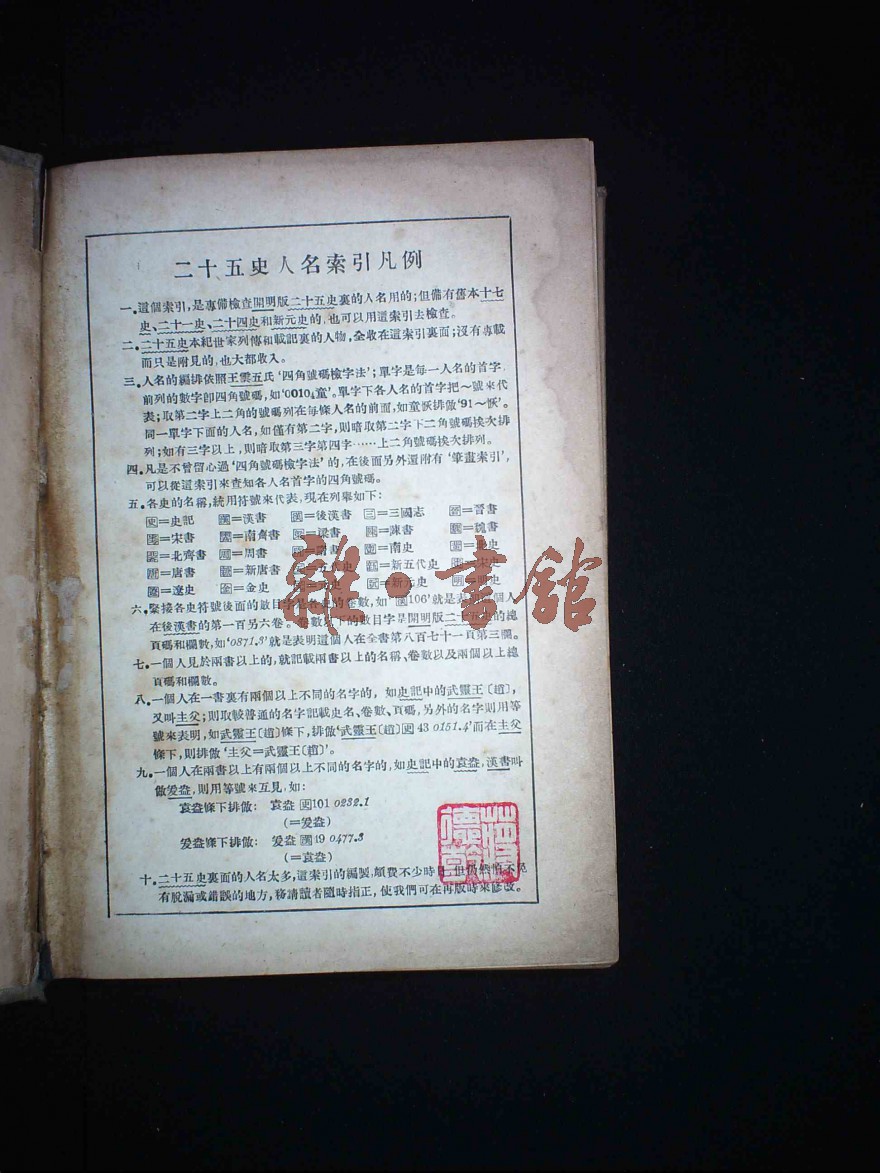 二十五史人名索引凡例
一.這個索引，是專備檢查開明版二十五史裏的人名用的；但備有舊本十七
史、二十一史、二十四史和新元史的，也可以用這索引去檢查。
二.二十五史本紀世家列傳和載記裏的人物，全收在這索引裏面；沒有專載
而只是附見的，也大都收入。
三.人名的編排依照王雲五氏‘四角號碼檢字法’；單字是每一人名的首字，
前列的數字卽四角號碼，如‘0010₄童’。單字下各人名的首字把～號來代
表；取第二字上二角的號碼列在每條人名的前面，如童恢排做‘91～恢’。
同一單字下面的人名，如僅有第二字，則暗取第二字下二角號碼挨次排
列；如有三字以上，則暗取第三字第四字……上二角號碼挨次排列。
四.凡是不曾留心過‘四角號碼檢字法’的，在後面另外還附有‘筆畫索引’，
可以從這索引來查知各人名首字的四角號碼。
五.各史的名稱，統用符號來代表，現在列舉如下：
=史記 =漢書 =後漢書 =三國志 =晉書
=宋書 =南齊書 =梁書 =陳書 =魏書
=北齊書 =周書 =南史
=唐書 =新唐書 五代史 =新五代史
=遼史 =金史 =新元史
六.緊接各史符號後面的數目字是各史的卷數，如‘106’就是表 個人
在後漢書的第一百另六卷。卷數 下的數目字是開明版二十五史的總
頁碼和欄數，如‘0871.3’就是表明這個人在全書第八百七十一頁第三欄。
七.一個人見於兩書以上的，就記載兩書以上的名稱、卷數以及兩個以上總
頁碼和欄數。
八.一個人在一書裏有兩個以上不同的名字的，如史記中的武靈王〔趙〕，
又叫主父；則取較普通的名字記載史名、卷數、頁碼，另外的名字則用等
號來表明，如武靈王〔趙〕條下，排做‘武靈王〔趙〕史 43 0151.4’而在主父
條下，則排做‘主父=武靈王〔趙〕’。
九.一個人在兩書以上有兩個以上不同的名字的，如史記中的袁盎，漢書叫
做爰盎，則用等號來互見，如：
袁盎條下排做： 袁盎 史101 0232.1
（=爰盎）
爰盎條下排做： 爰盎 漢49 0477.3
（=袁盎）
十.二十五史裏面的人名太多，這索引的編製，頗費不少時日，但仍然怕不免
有脫漏或錯誤的地方，務請讀者隨時指正，使我們可在再版時來修改。
雜·書館